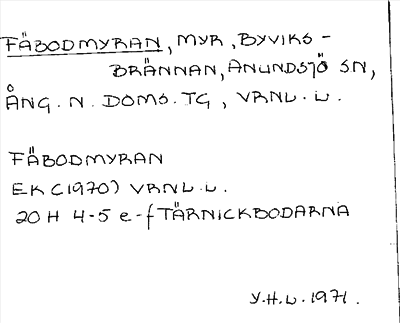 FÄBODMYRAN, MYR, BYVIKS-
BRÄNNAN, ANUNDSJÖ SN,
ÅNG. N. DOMS. TG, VRNL. L.
FÄBODMYRAN
EK (1970) VRNL. L.
20 H 4-5 e-f TÄRNICKBODARNA
Y.H.L. 1971.